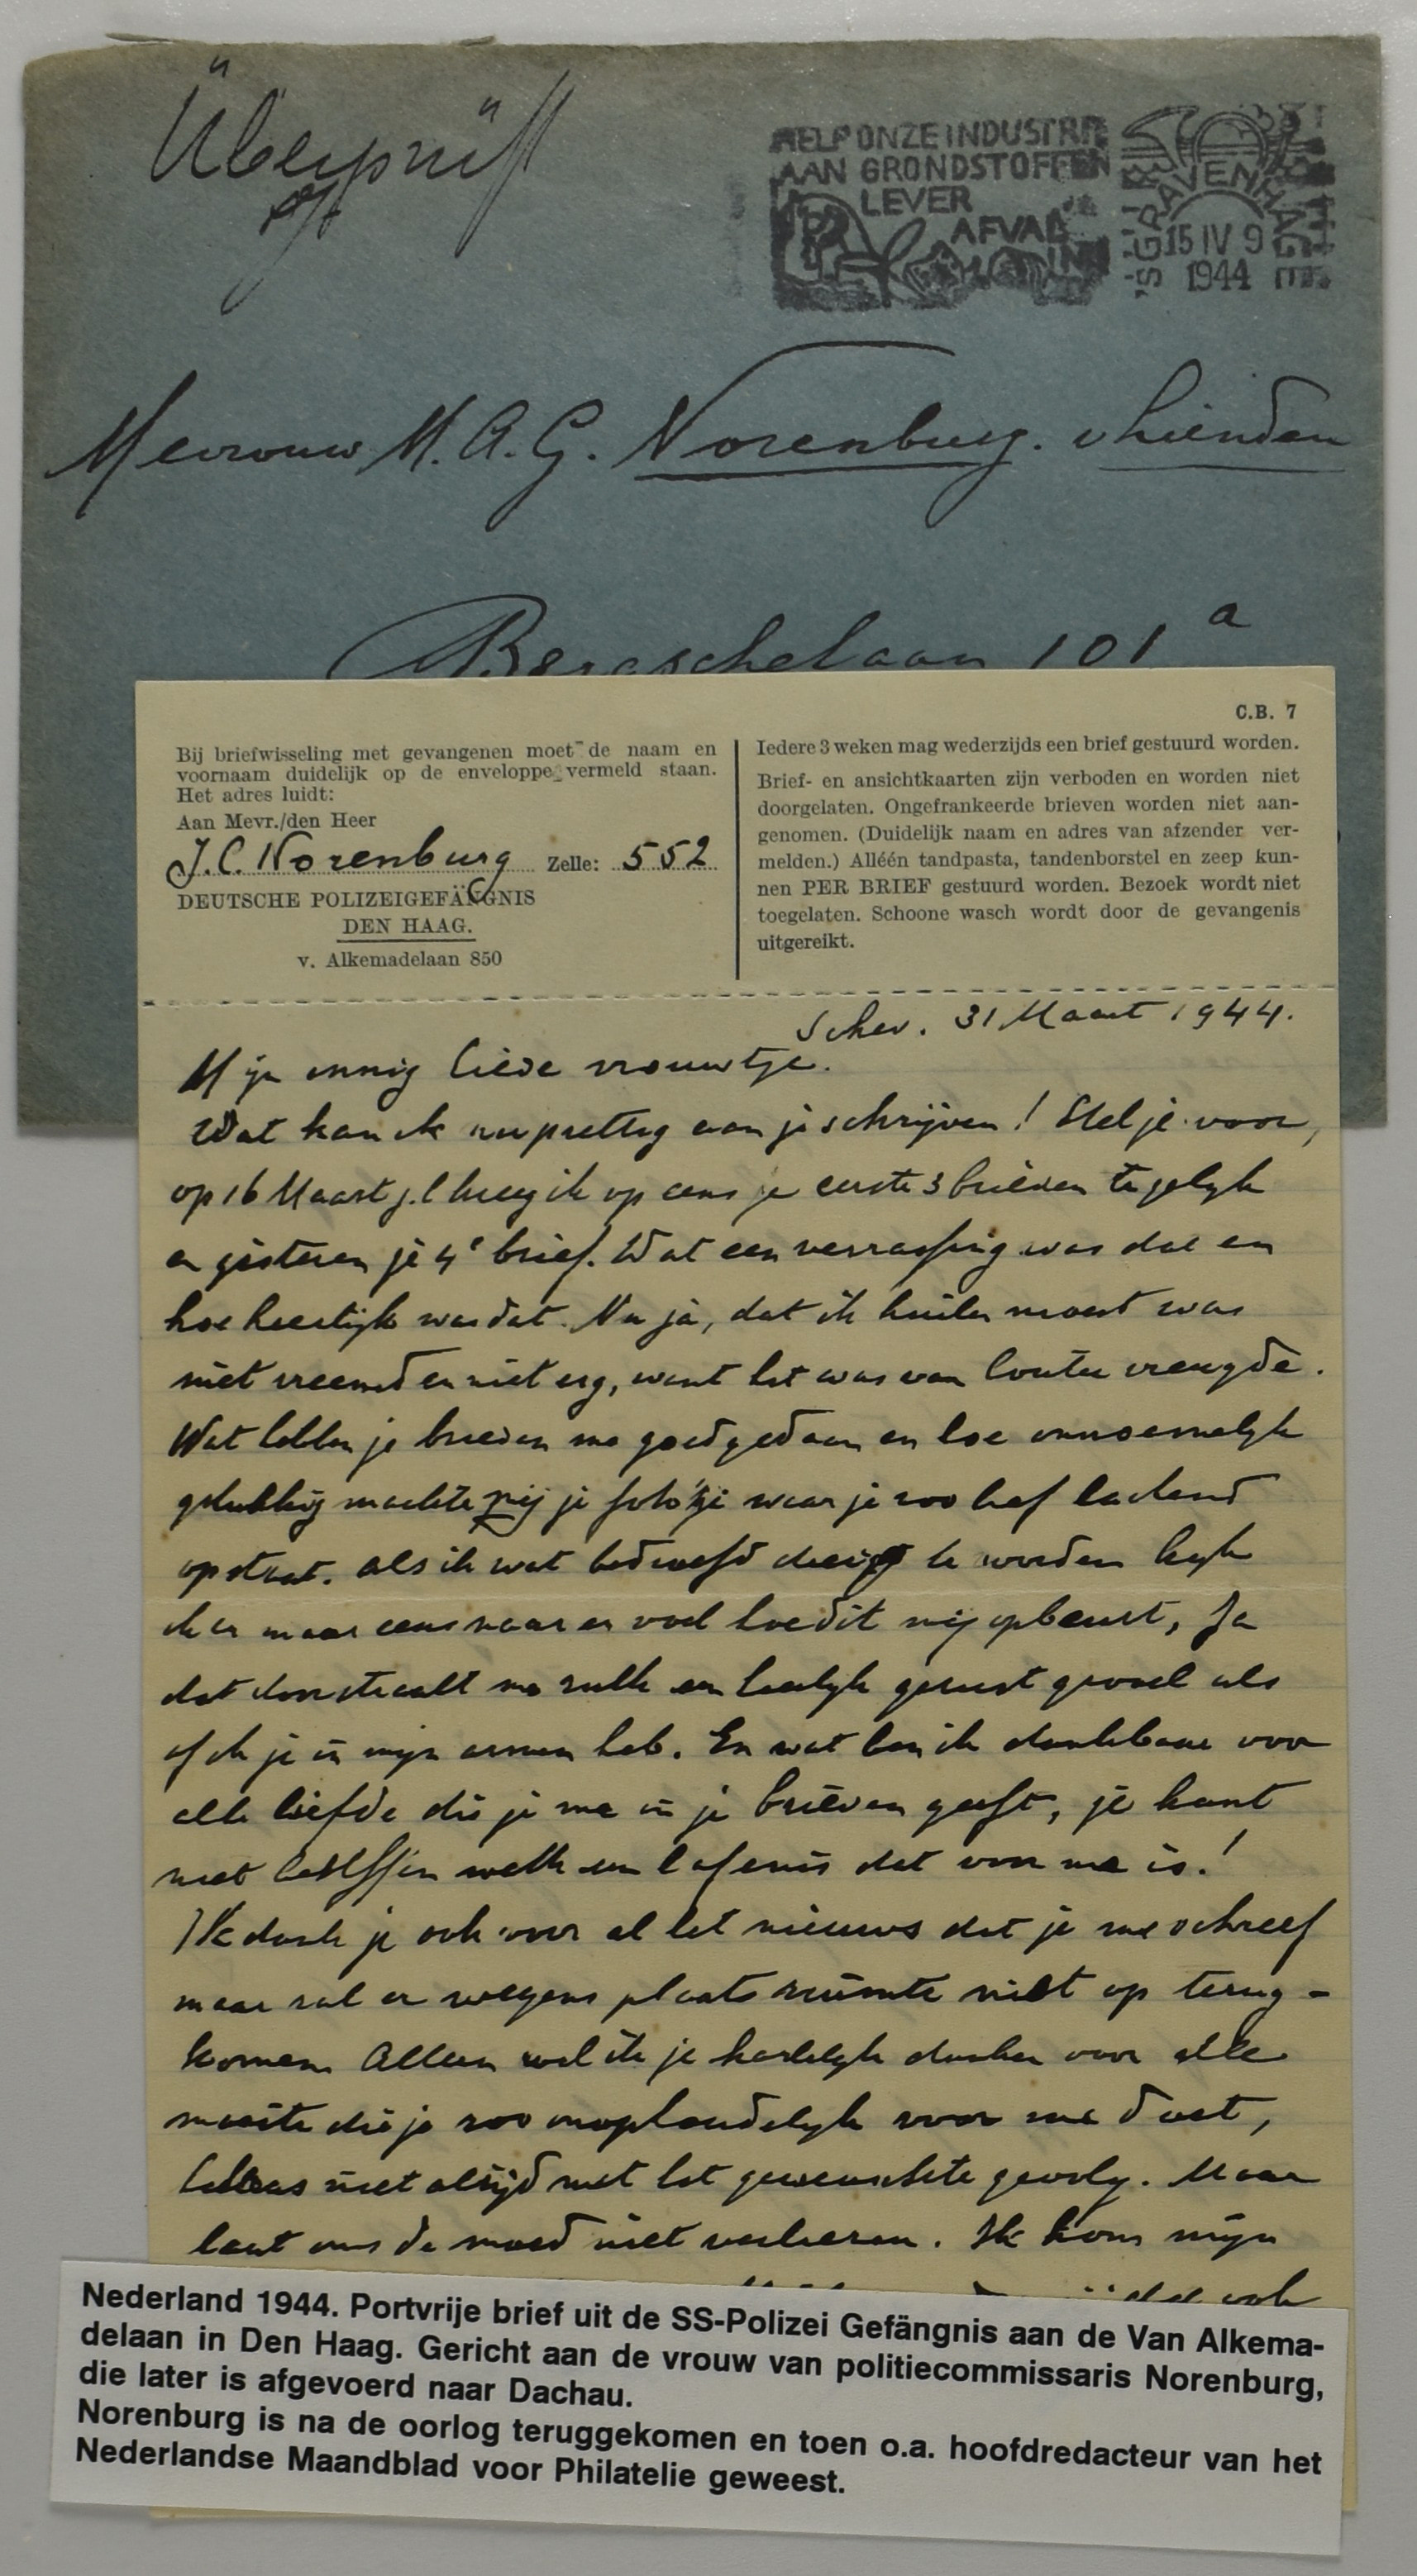 Überprüft
HELP ONZE INDUSTRIE
AAN GRONDSTOFFEN
LEVER
AFVAL
IN
'SGRAVENHAGE
15 IV 9
1944
Mevrouw M. A. G. Norenburg.
Bergschelaan 101 a
C.B. 7
Bij briefwisseling met gevangenen moet de naam en
voornaam duidelijk op de enveloppe vermeld staan.
Het adres luidt:
Aan Mevr./den Heer
J. C. Norenburg Zelle: 552
DEUTSCHE POLIZEIGEFÄNGNIS
DEN HAAG.
v. Alkemadelaan 850
Iedere 3 weken mag wederzijds een brief gestuurd worden.
Brief- en ansichtkaarten zijn verboden en worden niet
doorgelaten. Ongefrankeerde brieven worden niet aan-
genomen. (Duidelijk naam en adres van afzender ver-
melden.) Alléén tandpasta, tandenborstel en zeep kun-
nen PER BRIEF gestuurd worden. Bezoek wordt niet
toegelaten. Schoone wasch wordt door de gevangenis
uitgereikt.
Schev. 31 Maart 1944.
Mijn innig lieve vrouwtje.
Wat kan ik nu prettig aan je schrijven! Stel je voor,
op 16 Maart j.l kreeg ik op eens je eerste 3 brieven tegelijk
en gisteren je 4e brief. Wat een verrassing was dat en
hoe heerlijk was dat. Nu ja, dat ik huilen moest was
niet vreemd en niet erg, want het was van louter vreugde.
Wat hebben je brieven me goed gedaan en hoe onnoemelijk
gelukkig maakte mij je foto'tje waar je zoo lief lachend
op staat. Als ik wat bedroefd dreig te worden kijk
ik er maar eens naar en voel hoe dit mij opbeurt, Ja
dat doorstraalt me zulk een heerlijk gerust gevoel als
of ik je in mijn armen heb. En wat ben ik dankbaar voor
alle liefde die je me in je brieven geeft, je kunt
niet beseffen welk een lafenis dat voor me is!
Ik dank je ook voor al het nieuws dat je me schreef
maar zal er wegens plaats ruimte niet op terug-
komen. Alleen wil ik je hartelijk danken voor alle
moeite die je zoo onophoudelijk voor me doet,
helaas niet altijd met het gewenschte gevolg. Maar
laat ons de moed niet verliezen. Ik kom mijn
ook
Nederland 1944. Portvrije brief uit de SS-Polizei Gefängnis aan de Van Alkema-
delaan in Den Haag. Gericht aan de vrouw van politiecommissaris Norenburg,
die later is afgevoerd naar Dachau.
Norenburg is na de oorlog teruggekomen en toen o.a. hoofdredacteur van het
Nederlandse Maandblad voor Philatelie geweest.